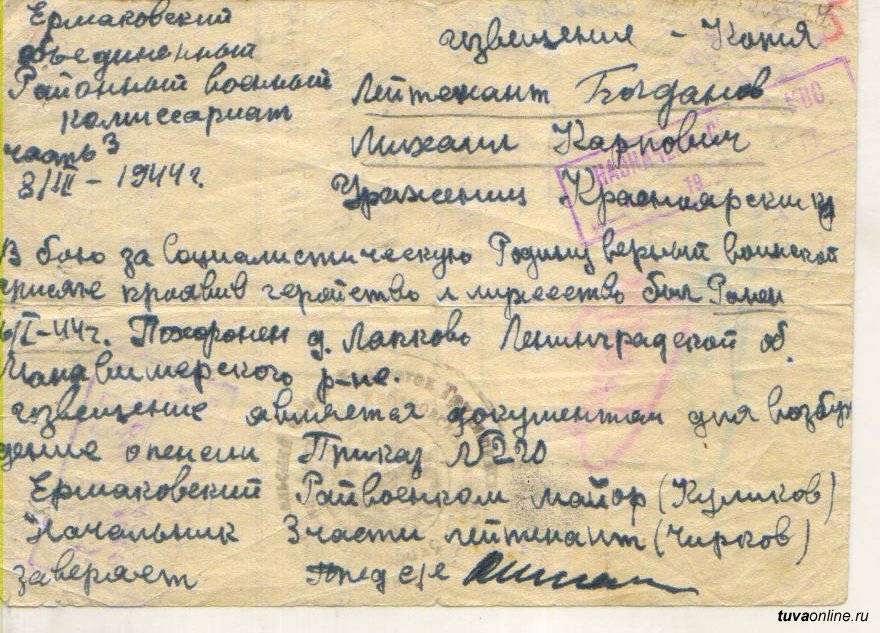 Ермаковский
объединенный
Районный военный
комиссариат
часть 3
8/III – 1944 г.
извещение – Копия
Лейтенант Богданов
Михаил Карпович
Уроженец Красноярский
В бою за социалистическую Родину верный воинской
присяге проявив геройство и мужество был Ранен
6/I-44г. Похоронен д. Лапково Ленинградской об.
р-не.
извещение является документом для возбуж
дение опенсии Приказ №220
Ермаковский Райвоенком майор (Куликов)
Начальник 3 части лейтенант (Чирков)
заверяет Пред с/с
tuvaonline.ru